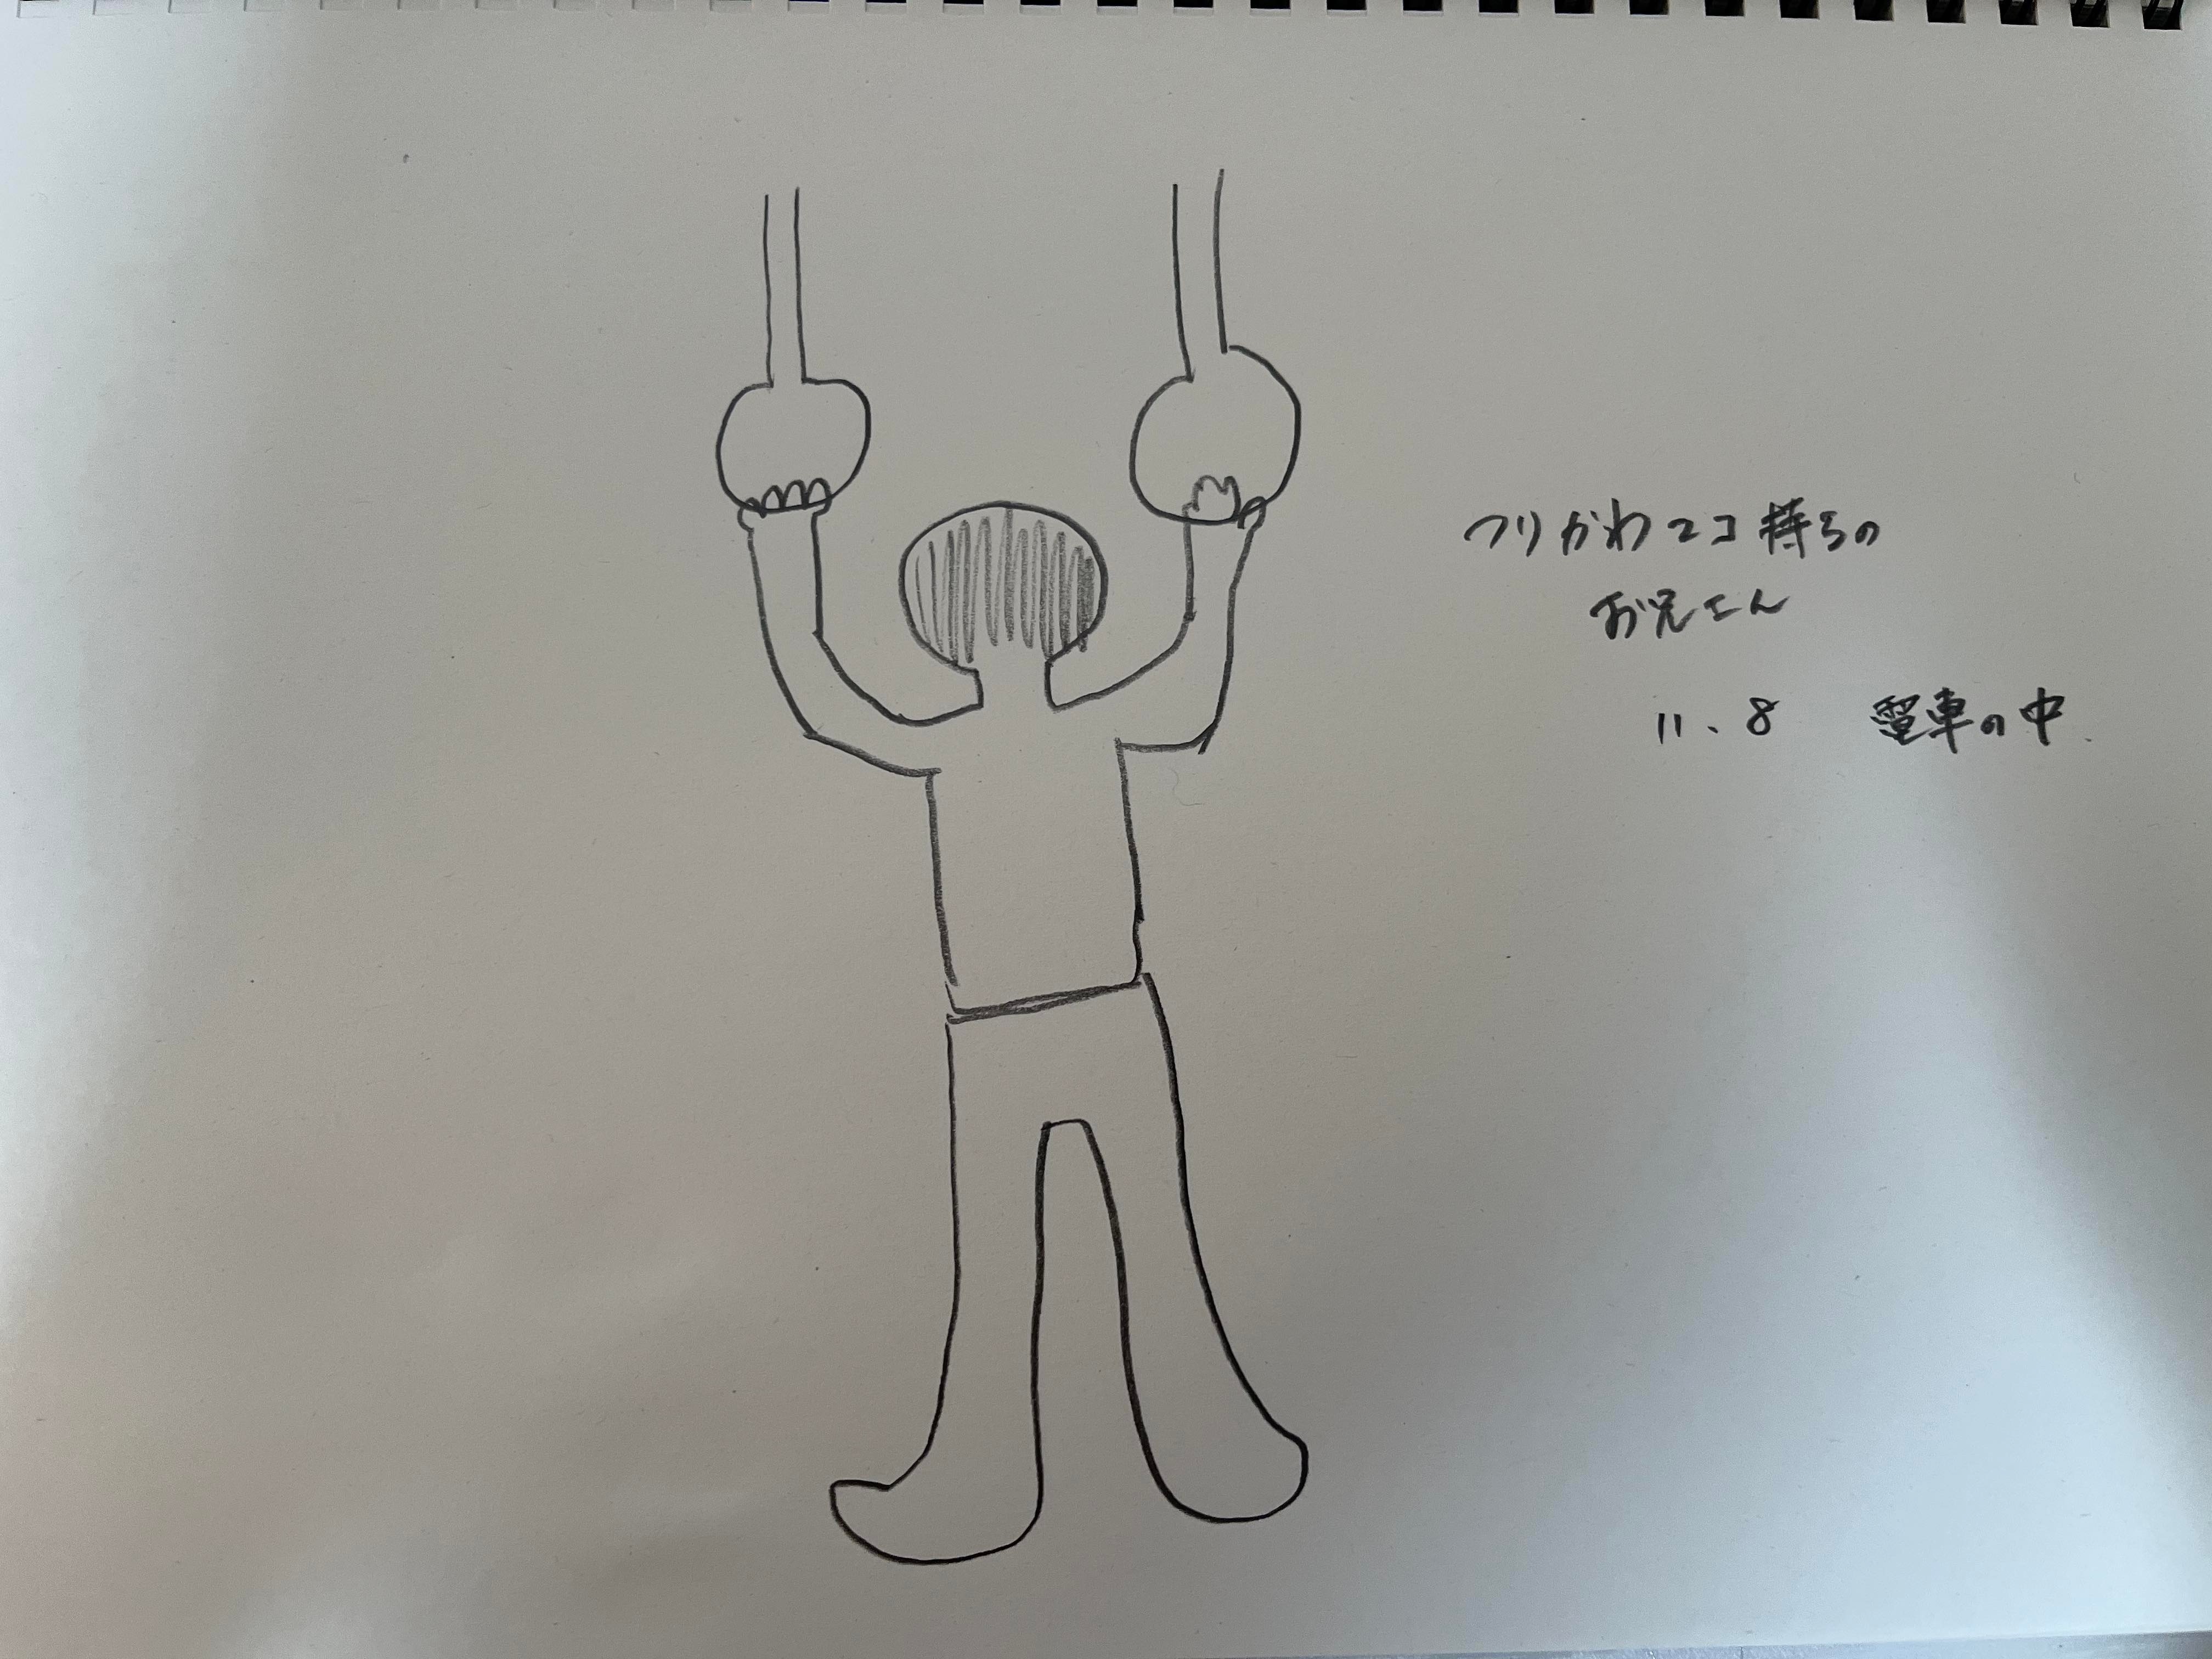 つりかわ2コ持ちの
お兄さん
11、8 電車の中